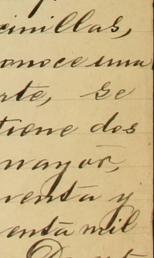 cinillas,
onoce una
rte, se
tiene dos
mayor,
venta y
enta mil